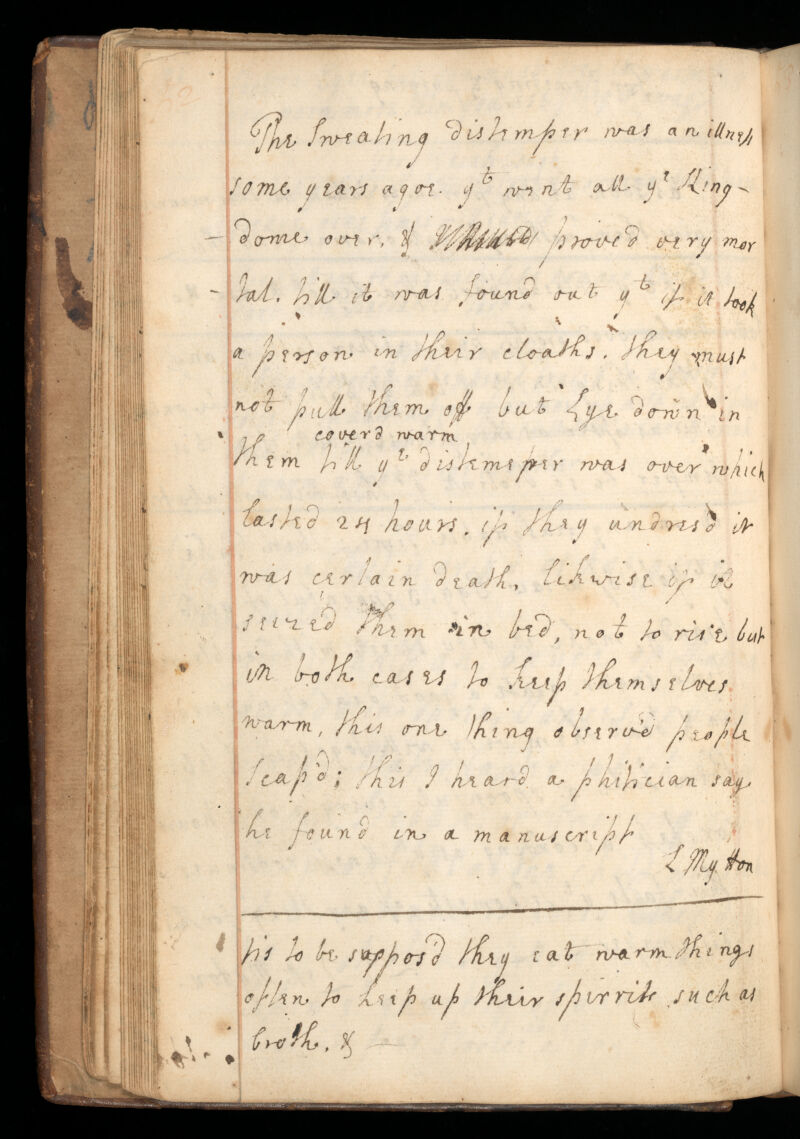 The Sweating distemper was an illness
some years agoe. yt went all ye King-
dome over, & proved very mor
tal. till it was found out yt if it took
a person in their cloaths. they must
not pull them off but Lye down in
coverd warm
them till ye distemeper was over which
lasted 24 hours. if they undresd it
was certain death, likewise if it
seized them in bed, not to rise but
in both cases to keep themselves
warm, this one thing observ'd people
scap'd; this I heard a phitician say
he found in a manuscript
L Mytton
tis to be suppos'd they eat warm things
often to keep up their spirrits such as
broth. &